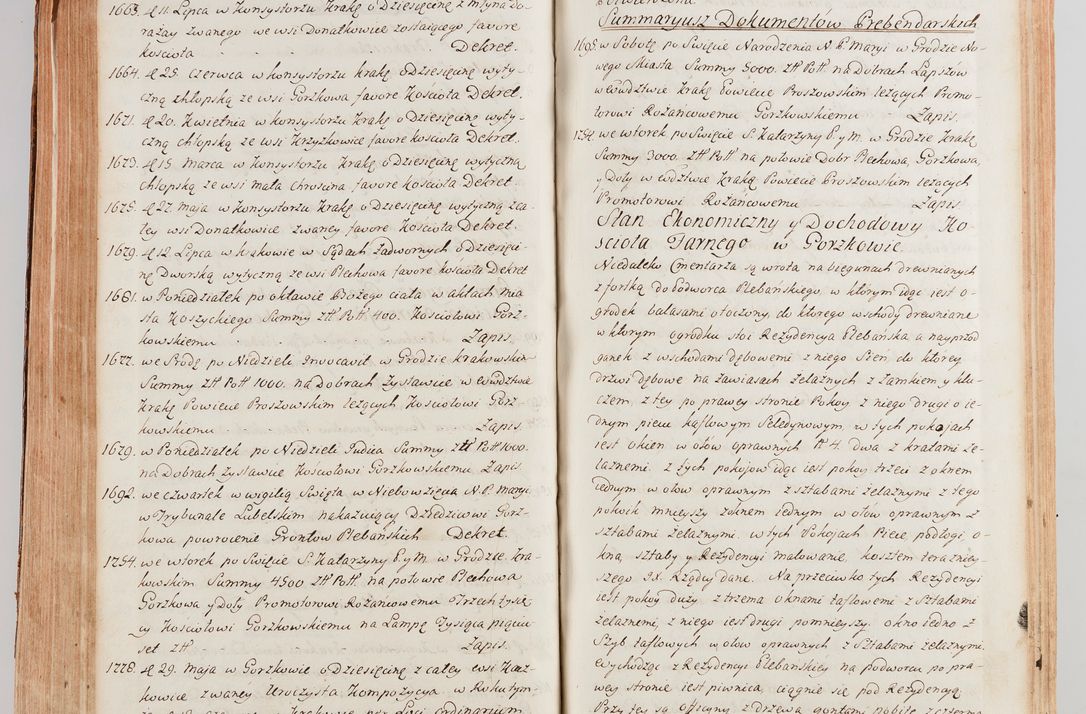 1663. d 11. Lipca w Konsystorzu Krakt o Dziesięcinę z Młyna Do-
razay zwanego we wsi Donatkowice zostającego favore
kościoła Dekret.
1664. d 25. Czerwca w konsystorzu krakt o Dziesięcinę wyty-
czną chłopską ze wsi Gorzkowa favore Kościoła Dekret.
1671. d 20. Kwietnia w konsystorzu Krakt o Dziesięcinę wyty-
czną chłopską ze wsi Krzyżkowie favore kościoła Dekret.
1673. d 15. Marca w Konsystorzu Krakt o Dziesięcinę wytyczną
chłopską ze wsi mała Chroscina favore kościoła Dekret.
1675. d 27. Maja w Konsystorzu Krakt o Dziesięcinę wytyczną z ca-
łey wsi Donatkowice zwaney favore Kościoła Dekret.
1679. d 12. Lipca w krakowie w Sądach Zadwornych o Dziesięci-
nę Dworską wytyczną ze wsi Plechowa favore kościoła Dekret
1681. w Poniedziałek po oktawie Bożego Ciała w aktach Mia-
sta Koszyckiego Summy złł Poll 400. Kościołowi Gorz-
kowskiemu Zapis.
1677. we Srodę po Niedzieli Invocavit w Grodzie krakowskim
Summy złł Poll 1000. na Dobrach Zysławice w ewdztwie
Krakt Powiecie Proszowskim leżących Kościołowi Gorz-
kowskiemu Zapis.
1679. w Poniedziałek po Niedzieli Judica Summy złł Poll 1000.
na Dobrach Zysławice Kościołowi Gorzkowskiemu Zapis.
1692. we czwartek w wigilią Swięta w Niebowzięcia N. P. Maryi
w Trybunale Lubelskim nakazuiący Dziedzicowi Gorz-
kowa powrocenie Grontow Plebańskich Dekret.
1754. we wtorek po Swięcie S. Katarzyny P. y M. w Grodzie kra-
kowskim Summy 4500 złł Poll. na połowie Plechowa
Gorzkowa y Doły Promotorowi Rożańcowemu Trzech tysię-
cy Kościołowi Gorzkowskiemu na Lampę Tysiąca pięciu-
set złł Zapis.
1778. d 29. Maja w Gorzkowie o Dziesięcinę z całey wsi Kacz-
kowice zwaney Uroczysta Kompozycya w Roku tym-
Summaryusz Dokumentów Prebendarskich
1695. w Sobotę po Swięcie Narodzenia N. P. Maryi w Grodzie No-
wego Miasta Summy 5000. złł Poll. na Dobrach Łapszów
w ewdztwie krakt Powiecie Proszowskim leżących Promo-
torowi Rożańcowemu Gorzkowskiemu Zapis.
1754. we wtorek po Swięcie S. Katarzyny P. y M. w Grodzie Krakt
Summy 3000. złł Poll na połowie Dobr Plechowa, Gorzkowa,
y Doły w ewdztwie Krakt Powiecie Proszowskim leżących
Promotorowi Rożańcowemu Zapis
Stan Ekonomiczny y Dochodowy Ko-
scioła Farnego w Gorzkowie.
Niedaleko Cmentarza są wrota na biegunach drewnianych
z fortką do Podworca Plebańskiego, w ktorym idąc iest o-
grodek balasami otoczony, do ktorego wschody drewniane
w ktorym ogrodku stoi Rezydencya Plebańska a nayprzod
ganek z wschodami dębowemi z niego Sień, do ktorey
drzwi dębowe na zawiasach żelaznych z Zamkiem y klu-
czem, z tey po prawey stronie Pokoy, z niego drugi o ie-
dnym piecu kaflowym Seledynowym, w tych pokojach
iest okien w ołow oprawnych N 4. dwa z kratami że-
laznemi. z tych pokojow idąc iest pokoy trzeci z oknem
iednym w ołow oprawnym z sztabami żelaznymi z tego
pokoik mnieyszy z oknem iednym w ołow oprawnym z
sztabami żelaznymi. w tych Pokojach Piece, podłogi, o-
kna, sztaby y Rezydencyi malowanie, kosztem teraźniey-
szego JX. Rządcy dane. Na przeciwko tych Rezydencyi
iest pokoy duży z trzema oknami taflowemi z Sztabami
żelaznemi, z niego iest drugi pomnieyszy, okno iedno z
Szyb taflowych w ołow oprawnych z Sztabami żelaznymi.
Wychodząc z Rezydencyi Plebańskiey na podworcu po pra-
wey stronie iest piwnica, ciągnie się pod Rezydencyą
Przy tey są oficyny z drzewa gontami pobite